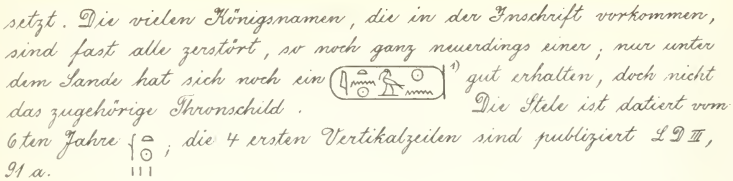 setzt. Die vielen Königsnamen, die in der Inschrift vorkommen,
sind fast alle zerstört, so noch ganz neuerdings einer; nur unter
dem Sande hat sich noch ein ¹⁾ gut erhalten, doch nicht
das zugehörige Thronschild. Die Stele ist datiert vom
6ten Jahre ; die 4 ersten Vertikalzeilen sind publiziert LD III,
91 a.